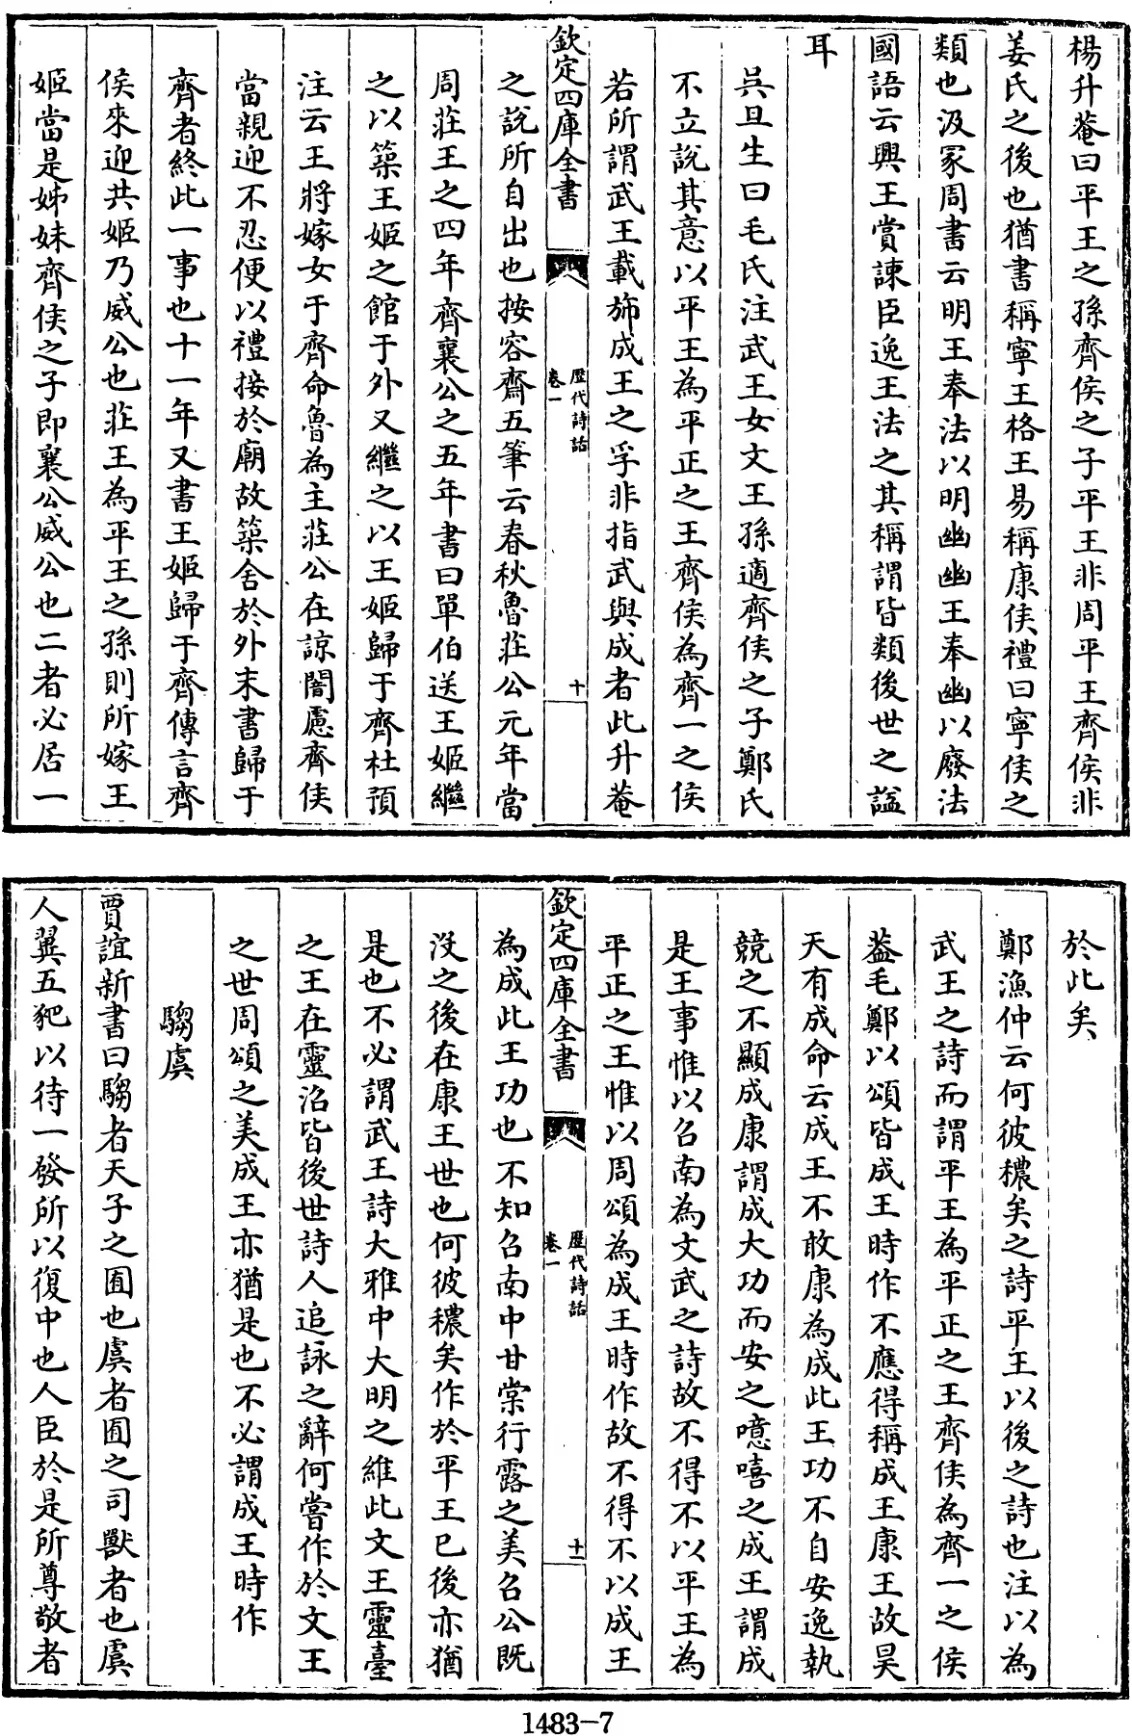 楊升菴曰平王之孫齊侯之子平王非周平王齊侯非
姜氏之後也猶書稱寧王格王易稱康侯禮曰寧侯之
類也汲冢周書云明王奉法以明幽幽王奉幽以廢法
國語云興王賞諫臣逸王法之其稱謂皆類後世之諡
耳
吳旦生曰毛氏注武王女文王孫適齊侯之子鄭氏
不立說其意以平王為平正之王齊侯為齊一之侯
若所謂武王載斾成王之孚非指武與成者此升菴
欽定四庫全書
歷代詩話
卷一
十
之說所自出也按容齋五筆云春秋魯莊公元年當
周莊王之四年齊襄公之五年書曰單伯送王姬繼
之以築王姬之館于外又繼之以王姬歸于齊杜預
注云王將嫁女于齊命魯為主莊公在諒闇慮齊侯
當親迎不忍便以禮接於廟故築舍於外末書歸于
齊者終此一事也十一年又書王姬歸于齊傳言齊
侯來迎共姬乃威公也莊王為平王之孫則所嫁王
姬當是姊妹齊侯之子即襄公威公也二者必居一
於此矣
鄭漁仲云何彼穠矣之詩平王以後之詩也注以為
武王之詩而謂平王為平正之王齊侯為齊一之侯
葢毛鄭以頌皆成王時作不應得稱成王康王故昊
天有成命云成王不敢康為成此王功不自安逸執
競之不顯成康謂成大功而安之噫嘻之成王謂成
是王事惟以召南為文武之詩故不得不以平王為
平正之王惟以周頌為成王時作故不得不以成王
欽定四庫全書
歷代詩話
卷一
十一
為成此王功也不知召南中甘棠行露之美召公既
沒之後在康王世也何彼穠矣作於平王已後亦猶
是也不必謂武王詩大雅中大明之維此文王靈臺
之王在靈沼皆後世詩人追詠之辭何嘗作於文王
之世周頌之美成王亦猶是也不必謂成王時作
騶虞
賈誼新書曰騶者天子之囿也虞者囿之司獸者也虞
人翼五豝以待一發所以復中也人臣於是所尊敬者
1483-7